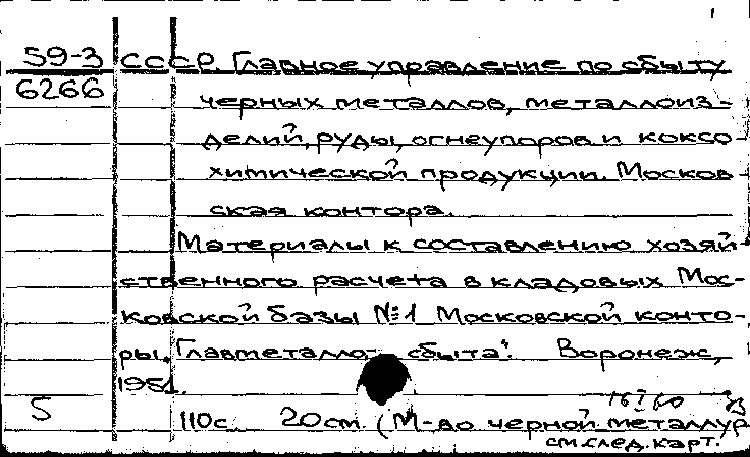 59-3 СССР. Главное управление по сбыту
6266 черных металлов, металлоиз-
делий, руды, огнеупоров и коксо-
химической продукции. Москов-
ская контора.
Материалы к составлению хозяй-
ственного расчета в кладовых Мос-
ковской базы №1 Московской конто-
ры „Главметалло- сбыта". Воронеж,
1951.
5 110с. 20см. (М-во черной металлур
см.след.карт.